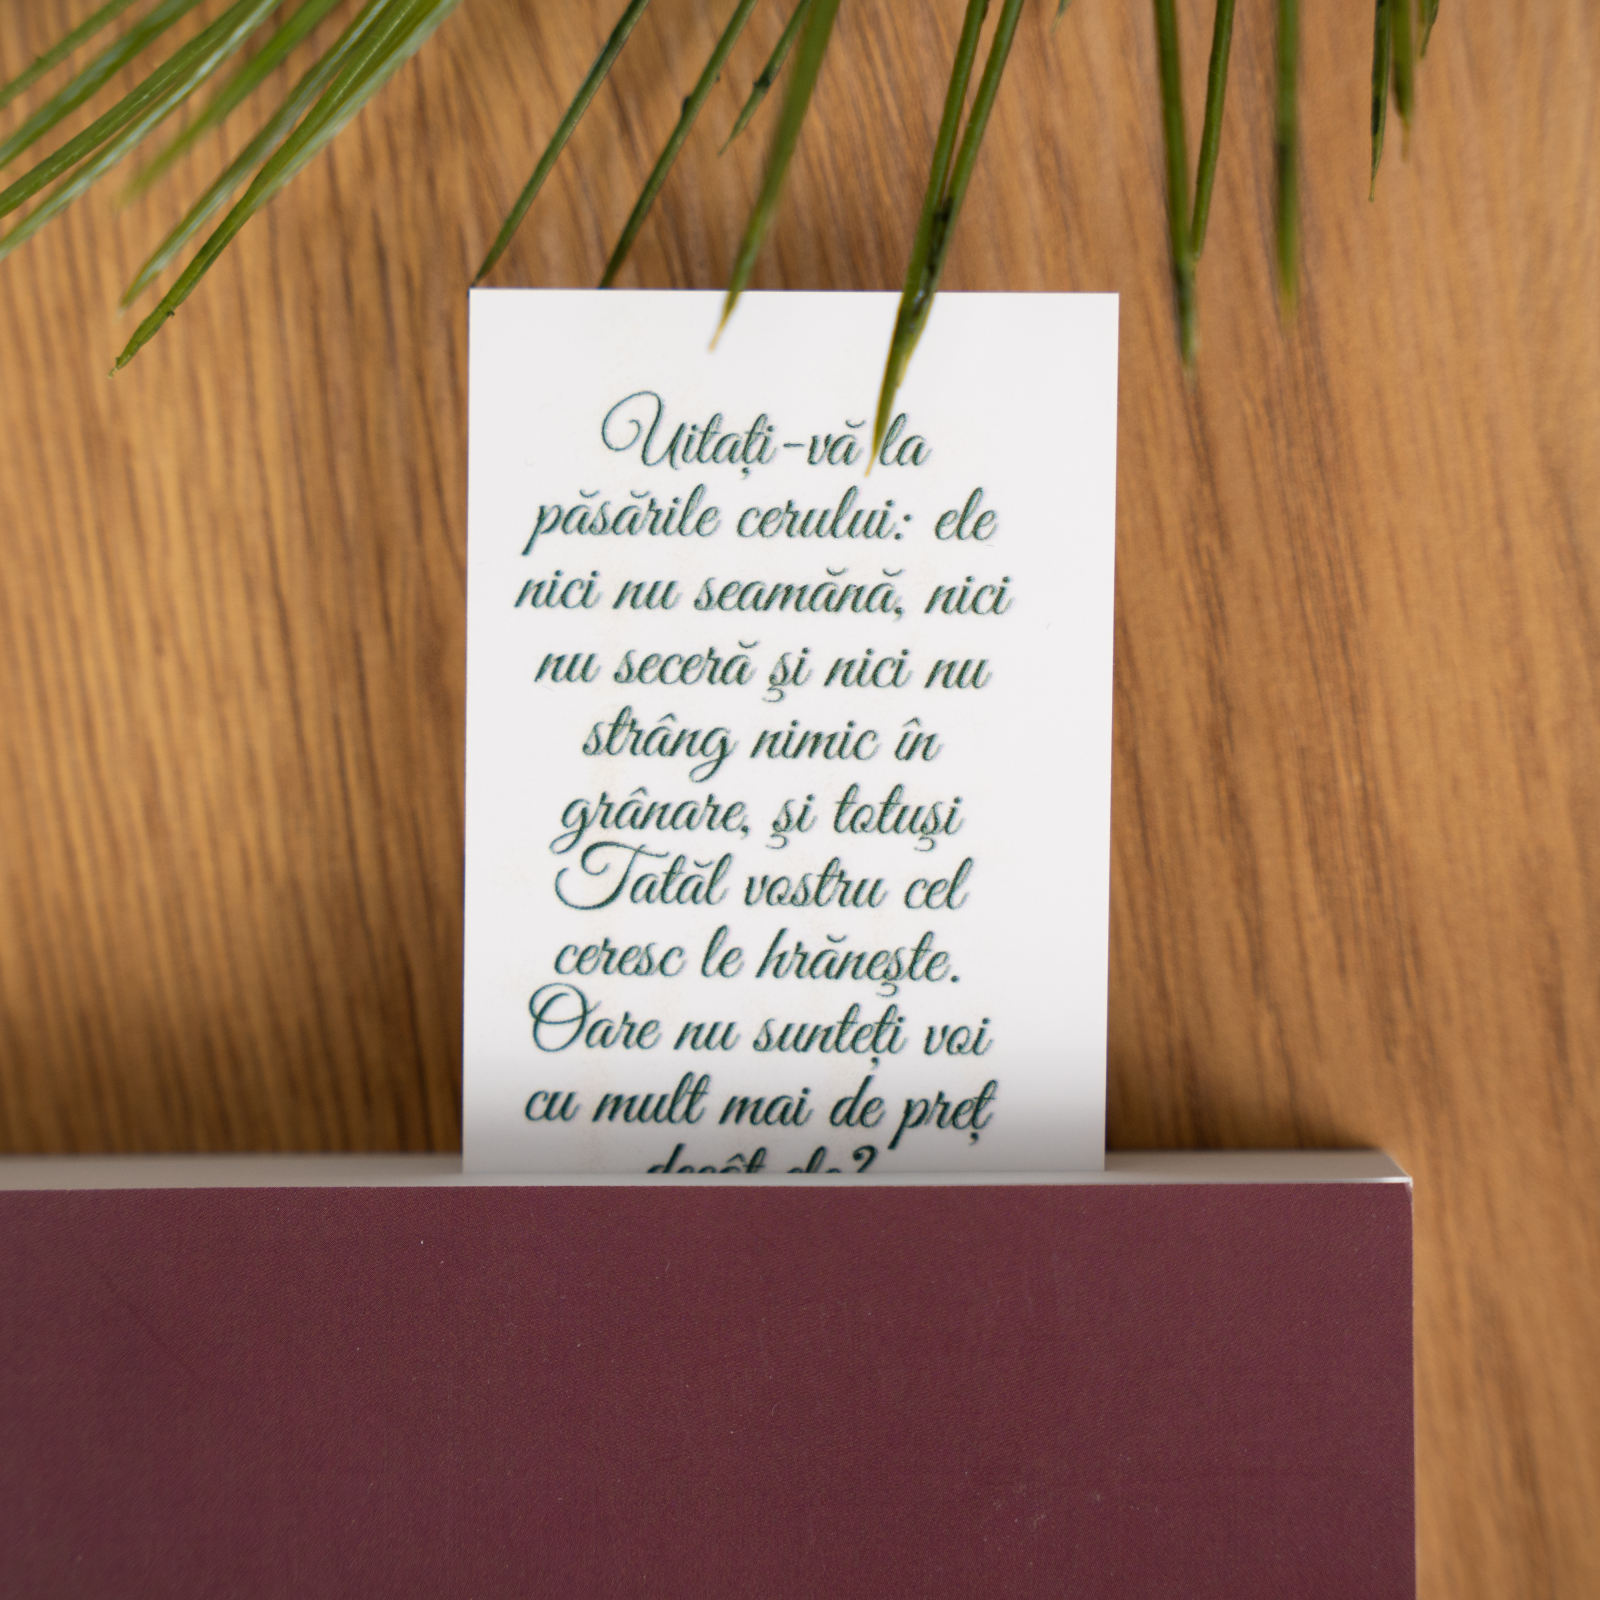 Uitați-vă la
păsările cerului: ele
nici nu seamănă, nici
nu seceră şi nici nu
strâng nimic în
grânare, şi totuşi
Tatăl vostru cel
ceresc le hrăneşte.
Oare nu sunteți voi
cu mult mai de preț
decât ele?